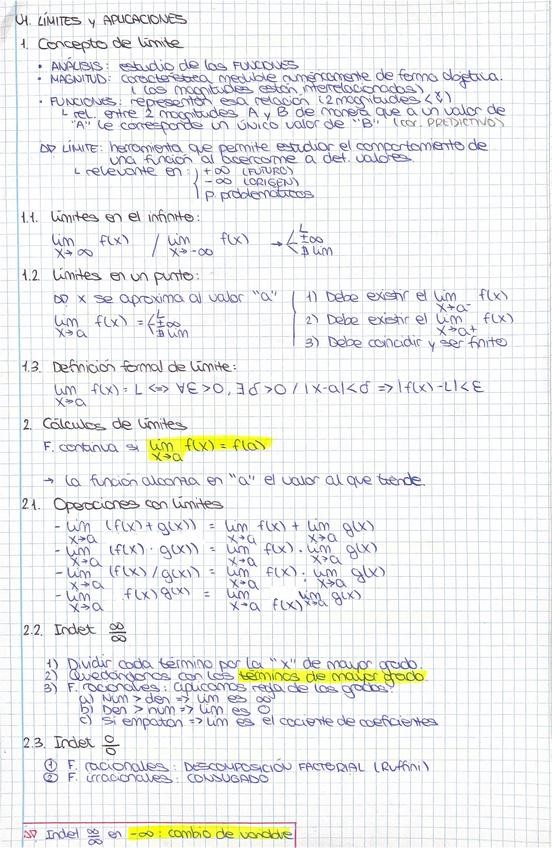 U1. LÍMITES y APLICACIONES
1. Concepto de límite
• ANÁLISIS: estudio de las FUNCIONES
• MAGNITUD: característica medible numéricamente de forma objetiva.
(las magnitudes están interrelacionadas).
• FUNCIONES: representan esa relación (2 magnitudes
↳ rel. entre 2 magnitudes A y B de manera que a un valor de
"A" le corresponde un único valor de "B" (car. PREDICTIVO)
LÍMITE: herramienta que permite estudiar el comportamiento de
una función al acercarme a det. valores.
↳ relevante en: +∞ (FUTURO)
-∞ (ORIGEN)
p. problemáticos
1.1. Límites en el infinito:
lim x→∞ f(x) / lim x→-∞ f(x) → L ±∞ ∄ lim
1.2. Límites en un punto:
x se aproxima al valor "a"
lim x→a f(x) = L ±∞ ∄ lim
1) Debe existir el lim x→a- f(x)
2) Debe existir el lim x→a+ f(x)
3) Debe coincidir y ser finito
1.3. Definición formal de límite:
lim x→a f(x) = L <=> ∀ε>0, ∃δ>0 / |x-a|<δ => |f(x)-L|<ε
2. Cálculos de límites
F. continua si lim x→a f(x) = f(a)
→ La función alcanza en "a" el valor al que tiende.
2.1. Operaciones con límites
- lim x→a (f(x)+g(x)) = lim x→a f(x) + lim x→a g(x)
- lim x→a (f(x)·g(x)) = lim x→a f(x) · lim x→a g(x)
- lim x→a (f(x)/g(x)) = lim x→a f(x) : lim x→a g(x)
- lim x→a f(x)^g(x) = lim x→a f(x)^lim x→a g(x)
2.2. Indet ∞/∞
1) Dividir cada término por la "x" de mayor grado.
2) Quedándonos con los términos de mayor grado
3) F. racionales: aplicamos regla de los grados:
a) Num > den => lim es ∞
b) Den > num => lim es 0
c) Si empatan => lim es el cociente de coeficientes
2.3. Indet 0/0
① F. racionales: DESCOMPOSICIÓN FACTORIAL (Ruffini)
② F. irracionales: CONJUGADO
Indet ∞/∞ en -∞: cambio de variable